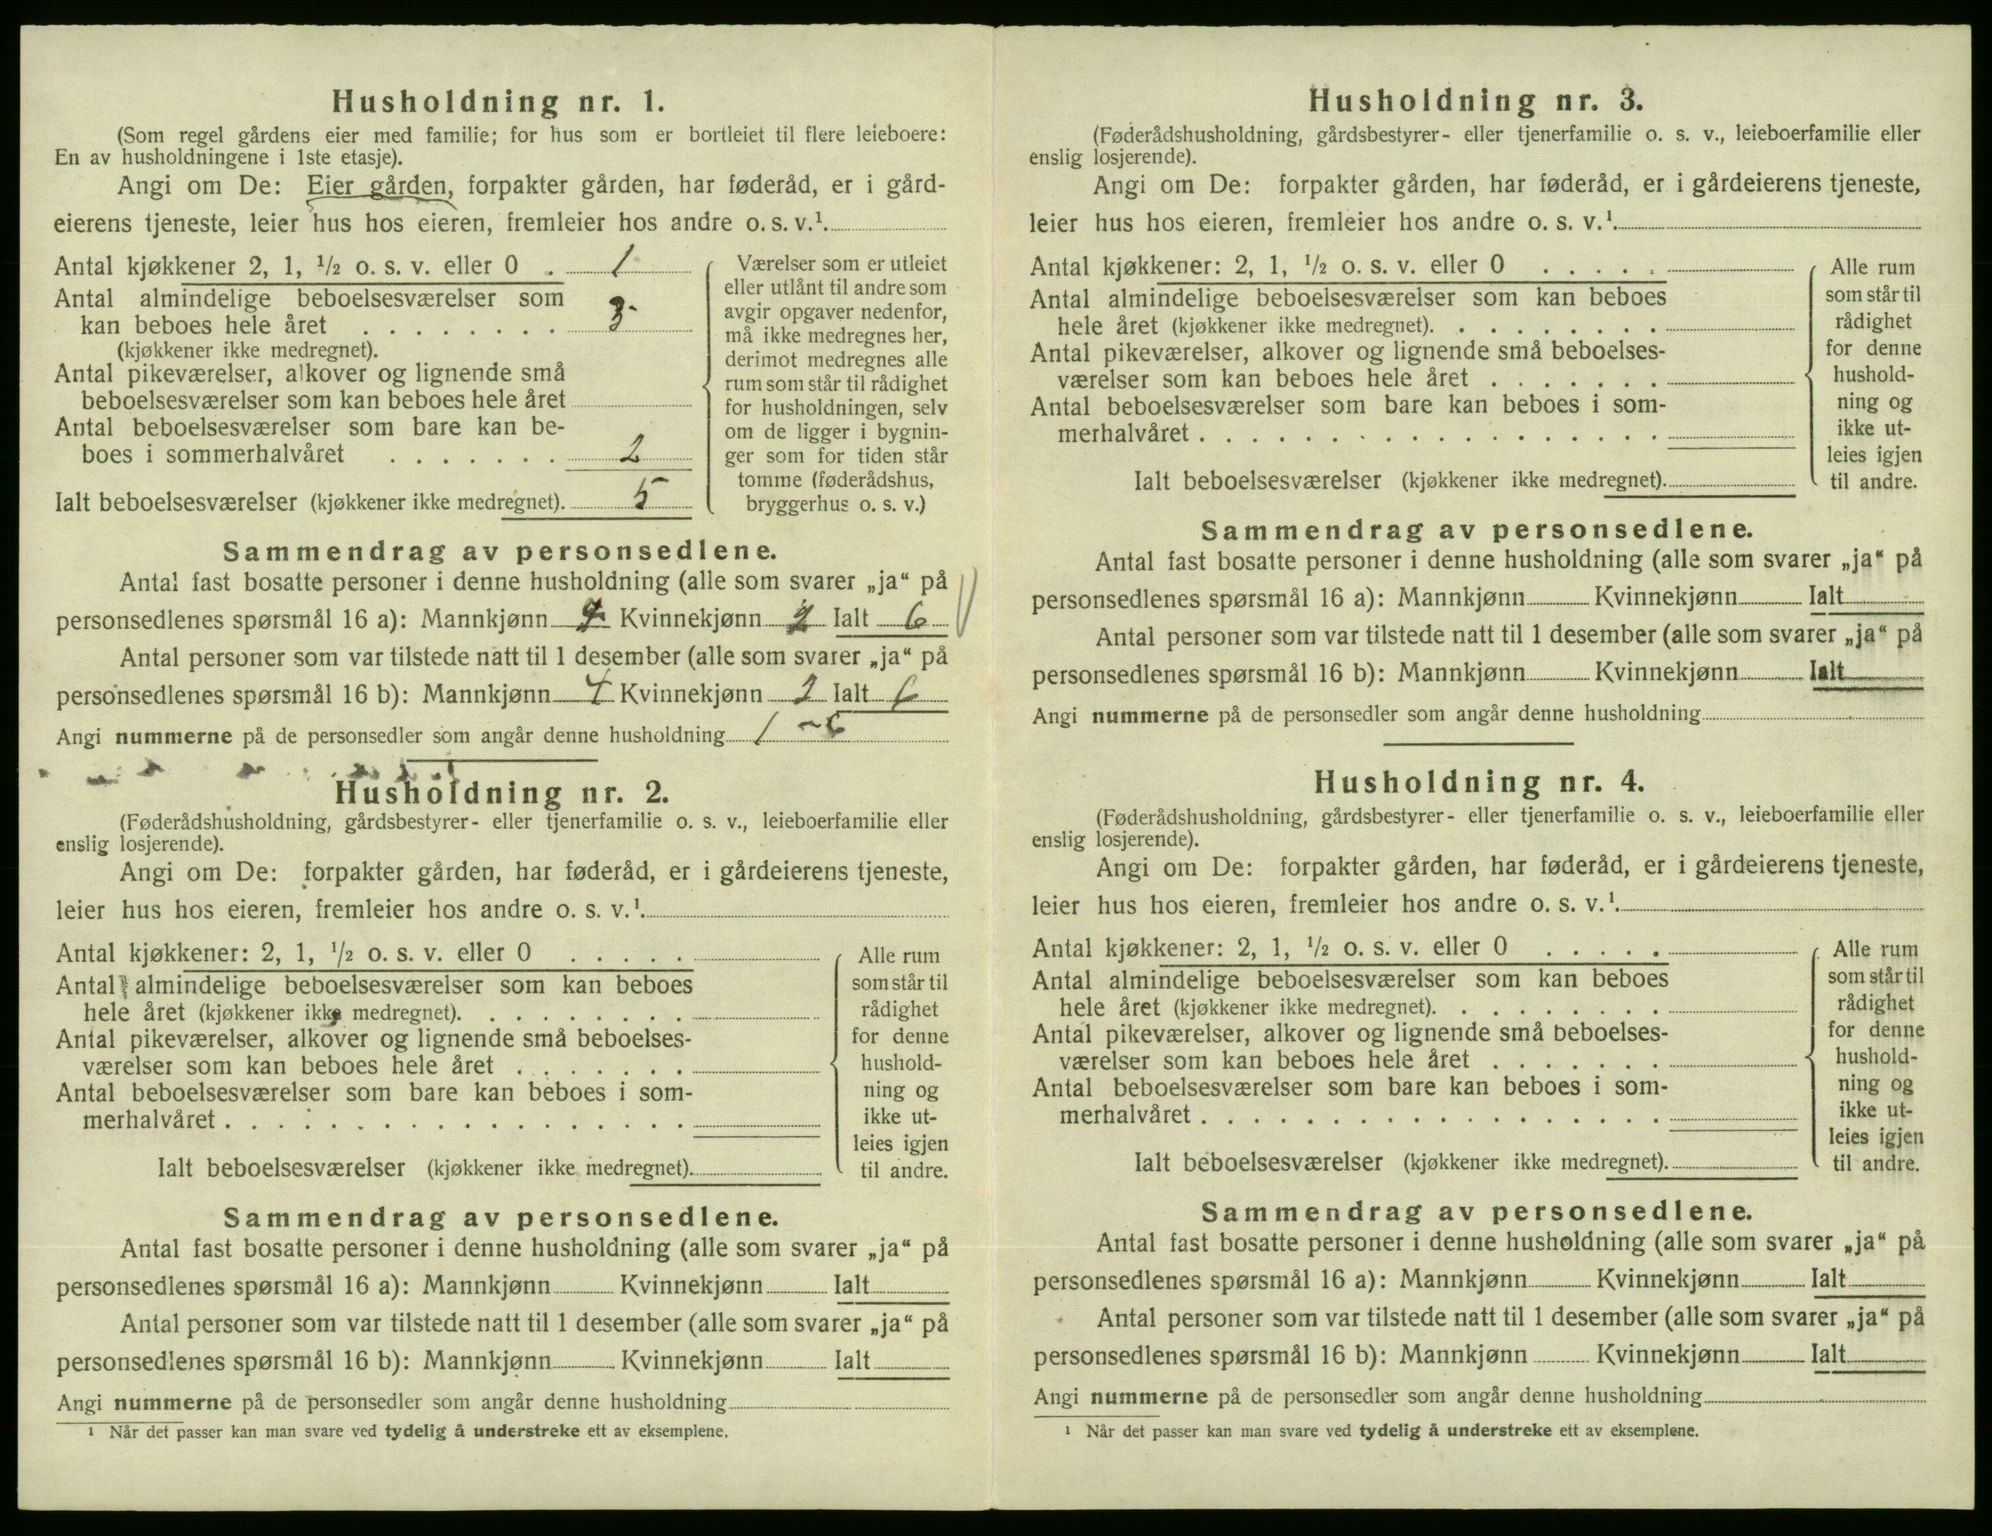 Husholdning nr. 1.
(Som regel gårdens eier med familie; for hus som er bortleiet til flere leieboere:
En av husholdningene i 1ste etasje).
Angi om De: Eier gården, forpakter gården, har føderåd, er i gård-
eierens tjeneste, leier hus hos eieren, fremleier hos andre o. s. v.¹.
Antal kjøkkener 2, 1, ½ o. s. v. eller 0 . 1
Antal almindelige beboelsesværelser som
kan beboes hele året . . . . . . . . 3
(kjøkkener ikke medregnet).
Antal pikeværelser, alkover og lignende små
beboelsesværelser som kan beboes hele året
Antal beboelsesværelser som bare kan be-
boes i sommerhalvåret . . . . . . . 2
Ialt beboelsesværelser (kjøkkener ikke medregnet). 5
Værelser som er utleiet
eller utlånt til andre som
avgir opgaver nedenfor,
må ikke medregnes her,
derimot medregnes alle
rum som står til rådighet
for husholdningen, selv
om de ligger i bygnin-
ger som for tiden står
tomme (føderådshus,
bryggerhus o. s. v.)
Sammendrag av personsedlene.
Antal fast bosatte personer i denne husholdning (alle som svarer „ja“ på
personsedlenes spørsmål 16 a): Mannkjønn 4 Kvinnekjønn 2 Ialt 6
Antal personer som var tilstede natt til 1 desember (alle som svarer „ja“ på
personsedlenes spørsmål 16 b): Mannkjønn 4 Kvinnekjønn 2 Ialt 6
Angi nummerne på de personsedler som angår denne husholdning 1 - 6
Husholdning nr. 2.
(Føderådshusholdning, gårdsbestyrer- eller tjenerfamilie o. s. v., leieboerfamilie eller
enslig losjerende).
Angi om De: forpakter gården, har føderåd, er i gårdeierens tjeneste,
leier hus hos eieren, fremleier hos andre o. s. v.¹.
Antal kjøkkener: 2, 1, ½ o. s. v. eller 0 . . . . .
Antal almindelige beboelsesværelser som kan beboes
hele året (kjøkkener ikke medregnet). . . . . . . . .
Antal pikeværelser, alkover og lignende små beboelses-
værelser som kan beboes hele året . . . . . . .
Antal beboelsesværelser som bare kan beboes i som-
merhalvåret . . . . . . . . . . . . . . . . . .
Ialt beboelsesværelser (kjøkkener ikke medregnet).
Alle rum
som står til
rådighet
for denne
hushold-
ning og
ikke ut-
leies igjen
til andre.
Sammendrag av personsedlene.
Antal fast bosatte personer i denne husholdning (alle som svarer „ja“ på
personsedlenes spørsmål 16 a): Mannkjønn Kvinnekjønn Ialt
Antal personer som var tilstede natt til 1 desember (alle som svarer „ja“ på
personsedlenes spørsmål 16 b): Mannkjønn Kvinnekjønn Ialt
Angi nummerne på de personsedler som angår denne husholdning
¹ Når det passer kan man svare ved tydelig å understreke ett av eksemplene.
Husholdning nr. 3.
(Føderådshusholdning, gårdsbestyrer- eller tjenerfamilie o. s. v., leieboerfamilie eller
enslig losjerende).
Angi om De: forpakter gården, har føderåd, er i gårdeierens tjeneste,
leier hus hos eieren, fremleier hos andre o. s. v.¹.
Antal kjøkkener: 2, 1, ½ o. s. v. eller 0 . . . . .
Antal almindelige beboelsesværelser som kan beboes
hele året (kjøkkener ikke medregnet). . . . . . . . .
Antal pikeværelser, alkover og lignende små beboelses-
værelser som kan beboes hele året . . . . . . .
Antal beboelsesværelser som bare kan beboes i som-
merhalvåret . . . . . . . . . . . . . . . . . .
Ialt beboelsesværelser (kjøkkener ikke medregnet).
Alle rum
som står til
rådighet
for denne
hushold-
ning og
ikke ut-
leies igjen
til andre.
Sammendrag av personsedlene.
Antal fast bosatte personer i denne husholdning (alle som svarer „ja“ på
personsedlenes spørsmål 16 a): Mannkjønn Kvinnekjønn Ialt
Antal personer som var tilstede natt til 1 desember (alle som svarer „ja“ på
personsedlenes spørsmål 16 b): Mannkjønn Kvinnekjønn Ialt
Angi nummerne på de personsedler som angår denne husholdning
Husholdning nr. 4.
(Føderådshusholdning, gårdsbestyrer- eller tjenerfamilie o. s. v., leieboerfamilie eller
enslig losjerende).
Angi om De: forpakter gården, har føderåd, er i gårdeierens tjeneste,
leier hus hos eieren, fremleier hos andre o. s. v.¹.
Antal kjøkkener: 2, 1, ½ o. s. v. eller 0 . . . . .
Antal almindelige beboelsesværelser som kan beboes
hele året (kjøkkener ikke medregnet). . . . . . . . .
Antal pikeværelser, alkover og lignende små beboelses-
værelser som kan beboes hele året . . . . . . .
Antal beboelsesværelser som bare kan beboes i som-
merhalvåret . . . . . . . . . . . . . . . . . .
Ialt beboelsesværelser (kjøkkener ikke medregnet).
Alle rum
som står til
rådighet
for denne
hushold-
ning og
ikke ut-
leies igjen
til andre.
Sammendrag av personsedlene.
Antal fast bosatte personer i denne husholdning (alle som svarer „ja“ på
personsedlenes spørsmål 16 a): Mannkjønn Kvinnekjønn Ialt
Antal personer som var tilstede natt til 1 desember (alle som svarer „ja“ på
personsedlenes spørsmål 16 b): Mannkjønn Kvinnekjønn Ialt
Angi nummerne på de personsedler som angår denne husholdning
¹ Når det passer kan man svare ved tydelig å understreke ett av eksemplene.